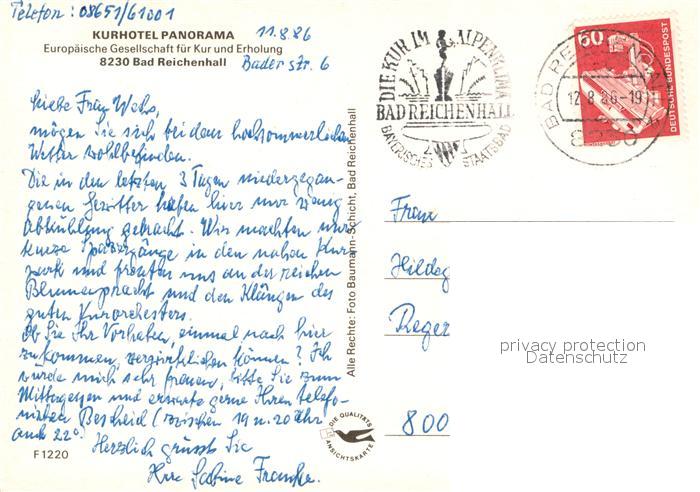 Telefon: 08651/61001
KURHOTEL PANORAMA
11.8.86
Europäische Gesellschaft für Kur und Erholung
8230 Bad Reichenhall
Bader str. 6
Liebe Frau
mögen Sie sich bei dem hochsommerlichen
Wetter wohlbefinden.
Die in den letzten 3 Tagen niedergegan-
genen Gewitter haben hier nur wenig
Abkühlung gebracht. Wir machten nur
kurze Spaziergänge in den nahen Kur-
park und freuten uns an der reichen
Blumenpracht und den Klängen des
guten Kurorchesters.
Ob Sie Ihr Vorhaben, einmal nach hier
zu kommen, verwirklichen können? Ich
würde mich sehr freuen, bitte Sie zum
Mittagessen und erwarte gerne Ihren telefo-
nischen Bescheid (zwischen 19 u. 20 Uhr
auch 22°.
Herzlich grüsst Sie
Ihre Sabine Franke.
F1220
Alle Rechte: Foto Baumann-Schicht, Bad Reichenhall
DIE QUALITÄTS
ANSICHTSKARTE
DIE KUR IM ALPENKLIMA
BAD REICHENHALL
BAYERISCHES STAATSBAD
BAD REICHEN
12.8.86-19
8230
60
DEUTSCHE BUNDESPOST
Frau
Hildeg
Reger
privacy protection
Datenschutz
800